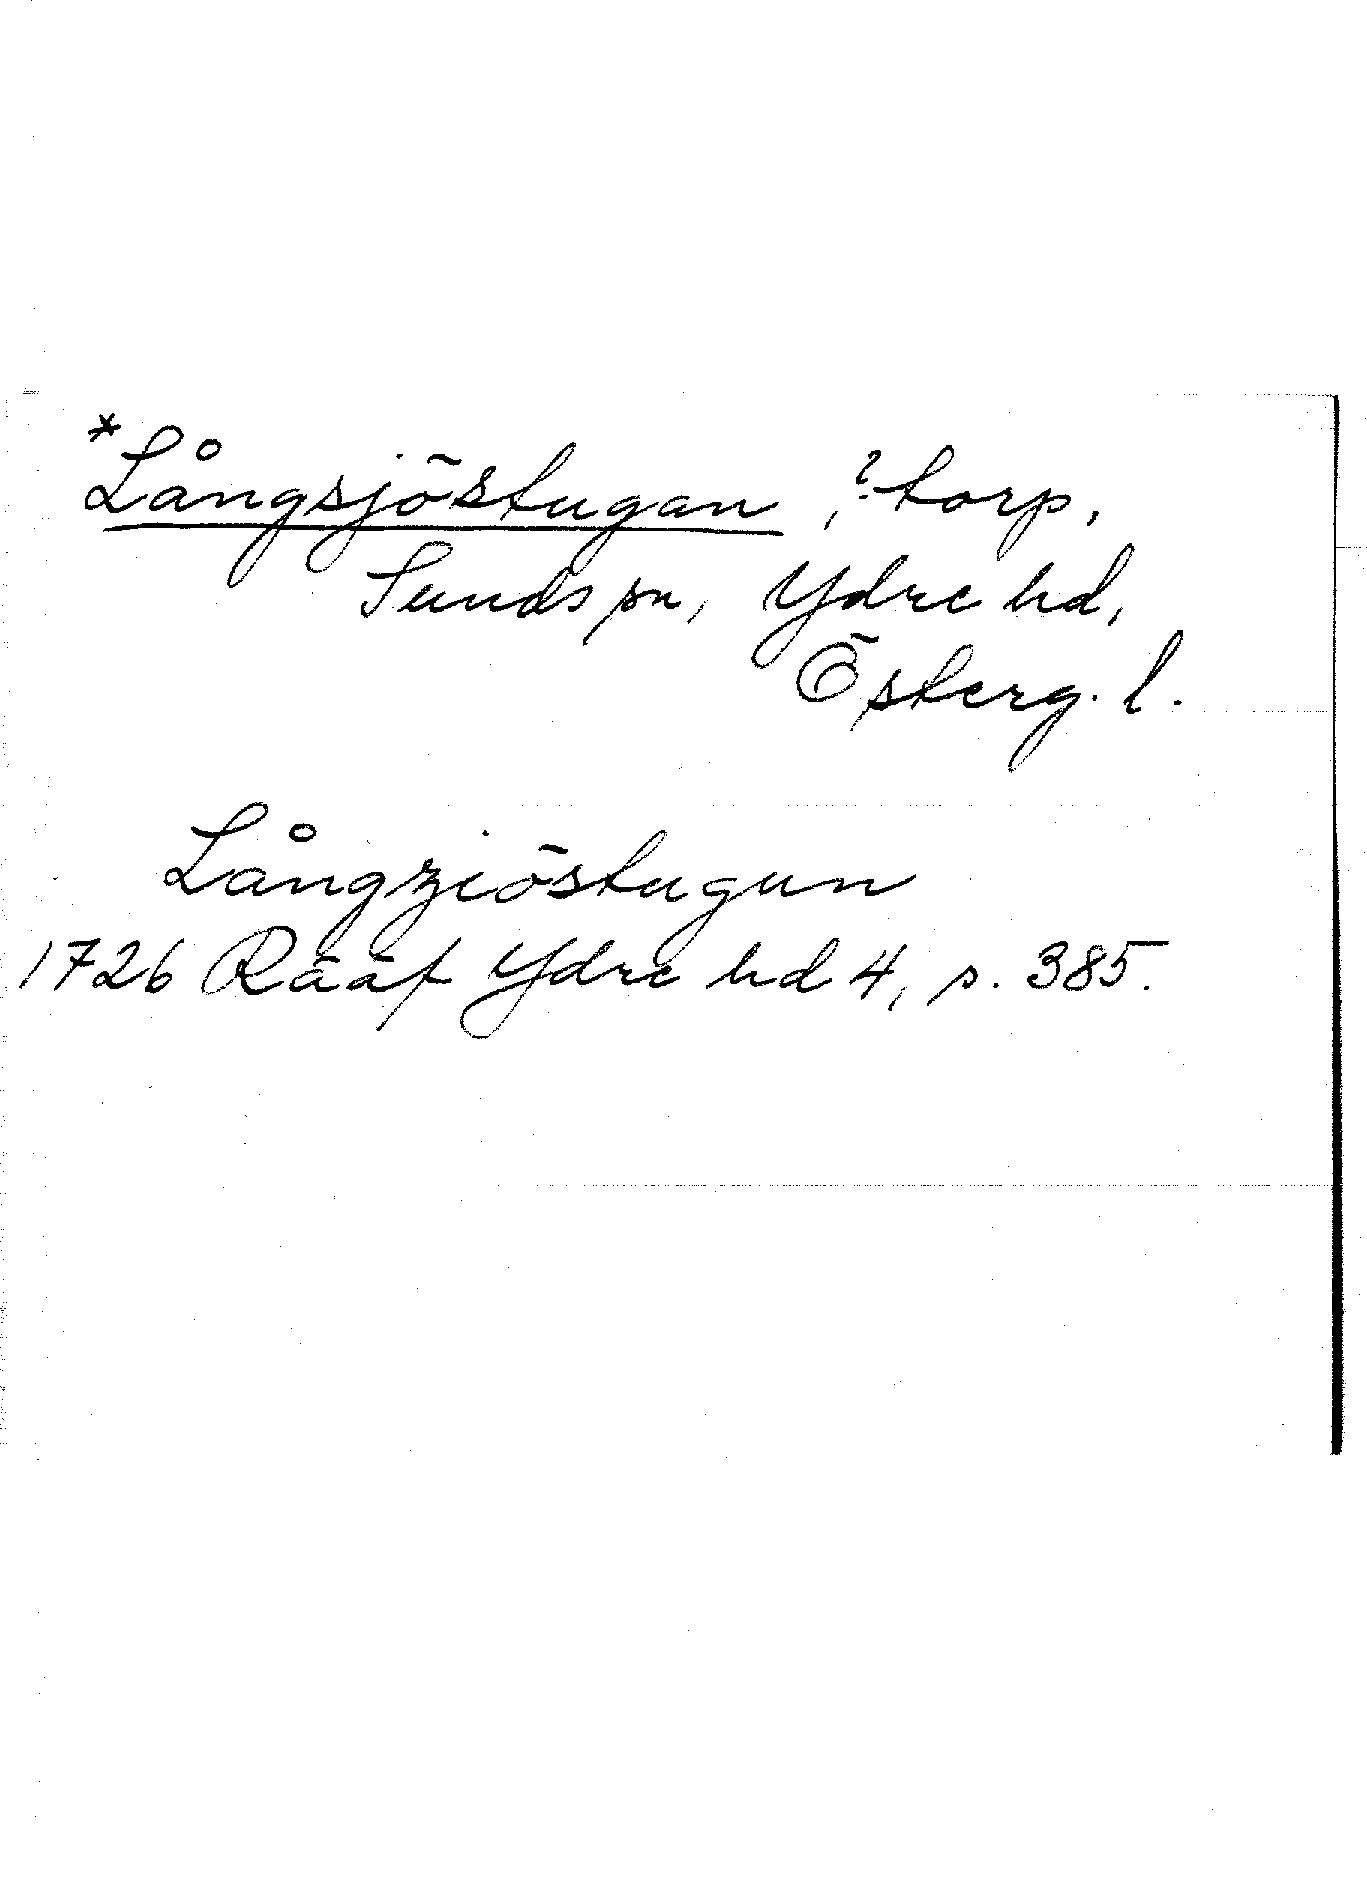 *Långsjöstugan, ?torp,
Sunds sn, Ydre hd,
Österg. l.
Långziöstugun
1726 Rääf Ydre hd 4, s. 385.